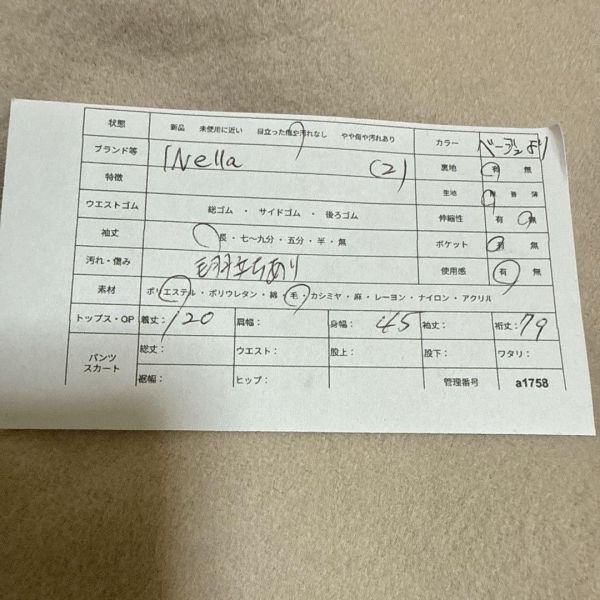 状態 新品 未使用に近い 目立った傷や汚れなし やや傷や汚れあり カラー ベージュより
ブランド等 INella (2) 裏地 有 無
特徴 生地 厚 普 薄
ウエストゴム 総ゴム ・ サイドゴム ・ 後ろゴム 伸縮性 有 無
袖丈 長・七〜九分・五分・半・無 ポケット 有 無
汚れ・傷み 毛羽立ちあり 使用感 有 無
素材 ポリエステル・ポリウレタン・綿・毛・カシミヤ・麻・レーヨン・ナイロン・アクリル
トップス・OP 着丈: 120 肩幅: 身幅: 45 袖丈: 裄丈: 79
パンツ スカート 総丈: ウエスト: 股上: 股下: ワタリ:
裾幅: ヒップ: 管理番号 a1758